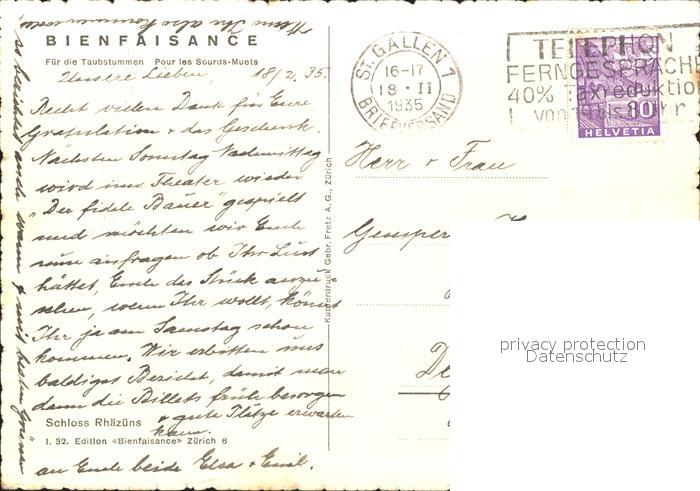 BIENFAISANCE
Für die Taubstummen Pour les Sourds-Muets
Unsere Lieben, 18/2. 35.
Recht vielen Dank für Eure
Gratulation + das Geschenk.
Nächsten Sonntag Nachmittag
wird im Theater wieder
"Der fidele Bauer" gespielt
und möchten wir Euch
nun anfragen ob Ihr Lust
hättet, Euch das Stück anzu-
sehen, wenn Ihr wollt, könnt
Ihr ja am Samstag schon
kommen. Wir erbitten uns
baldigst Bericht, damit man
dann die Billets früh besorgen
+ gute Plätze erwarten
kann.
Schloss Rhäzüns
I. 32. Edition «Bienfaisance» Zürich 6
Wenn Ihr also kommen
so berichtet auch wann + mit besten Grüssen
an Euch beide Elsa + Emil.
Kupferdruck Gebr. Fretz A. G., Zürich
ST. GALLEN 1
16-17
18 · II
1935
BRIEFVERSAND
TELEPHON
FERNGESPRÄCHE
40% Taxreduktion
von 19 bis 8 Uhr
10
HELVETIA
Herr + Frau
Gemper
De
privacy protection
Datenschutz